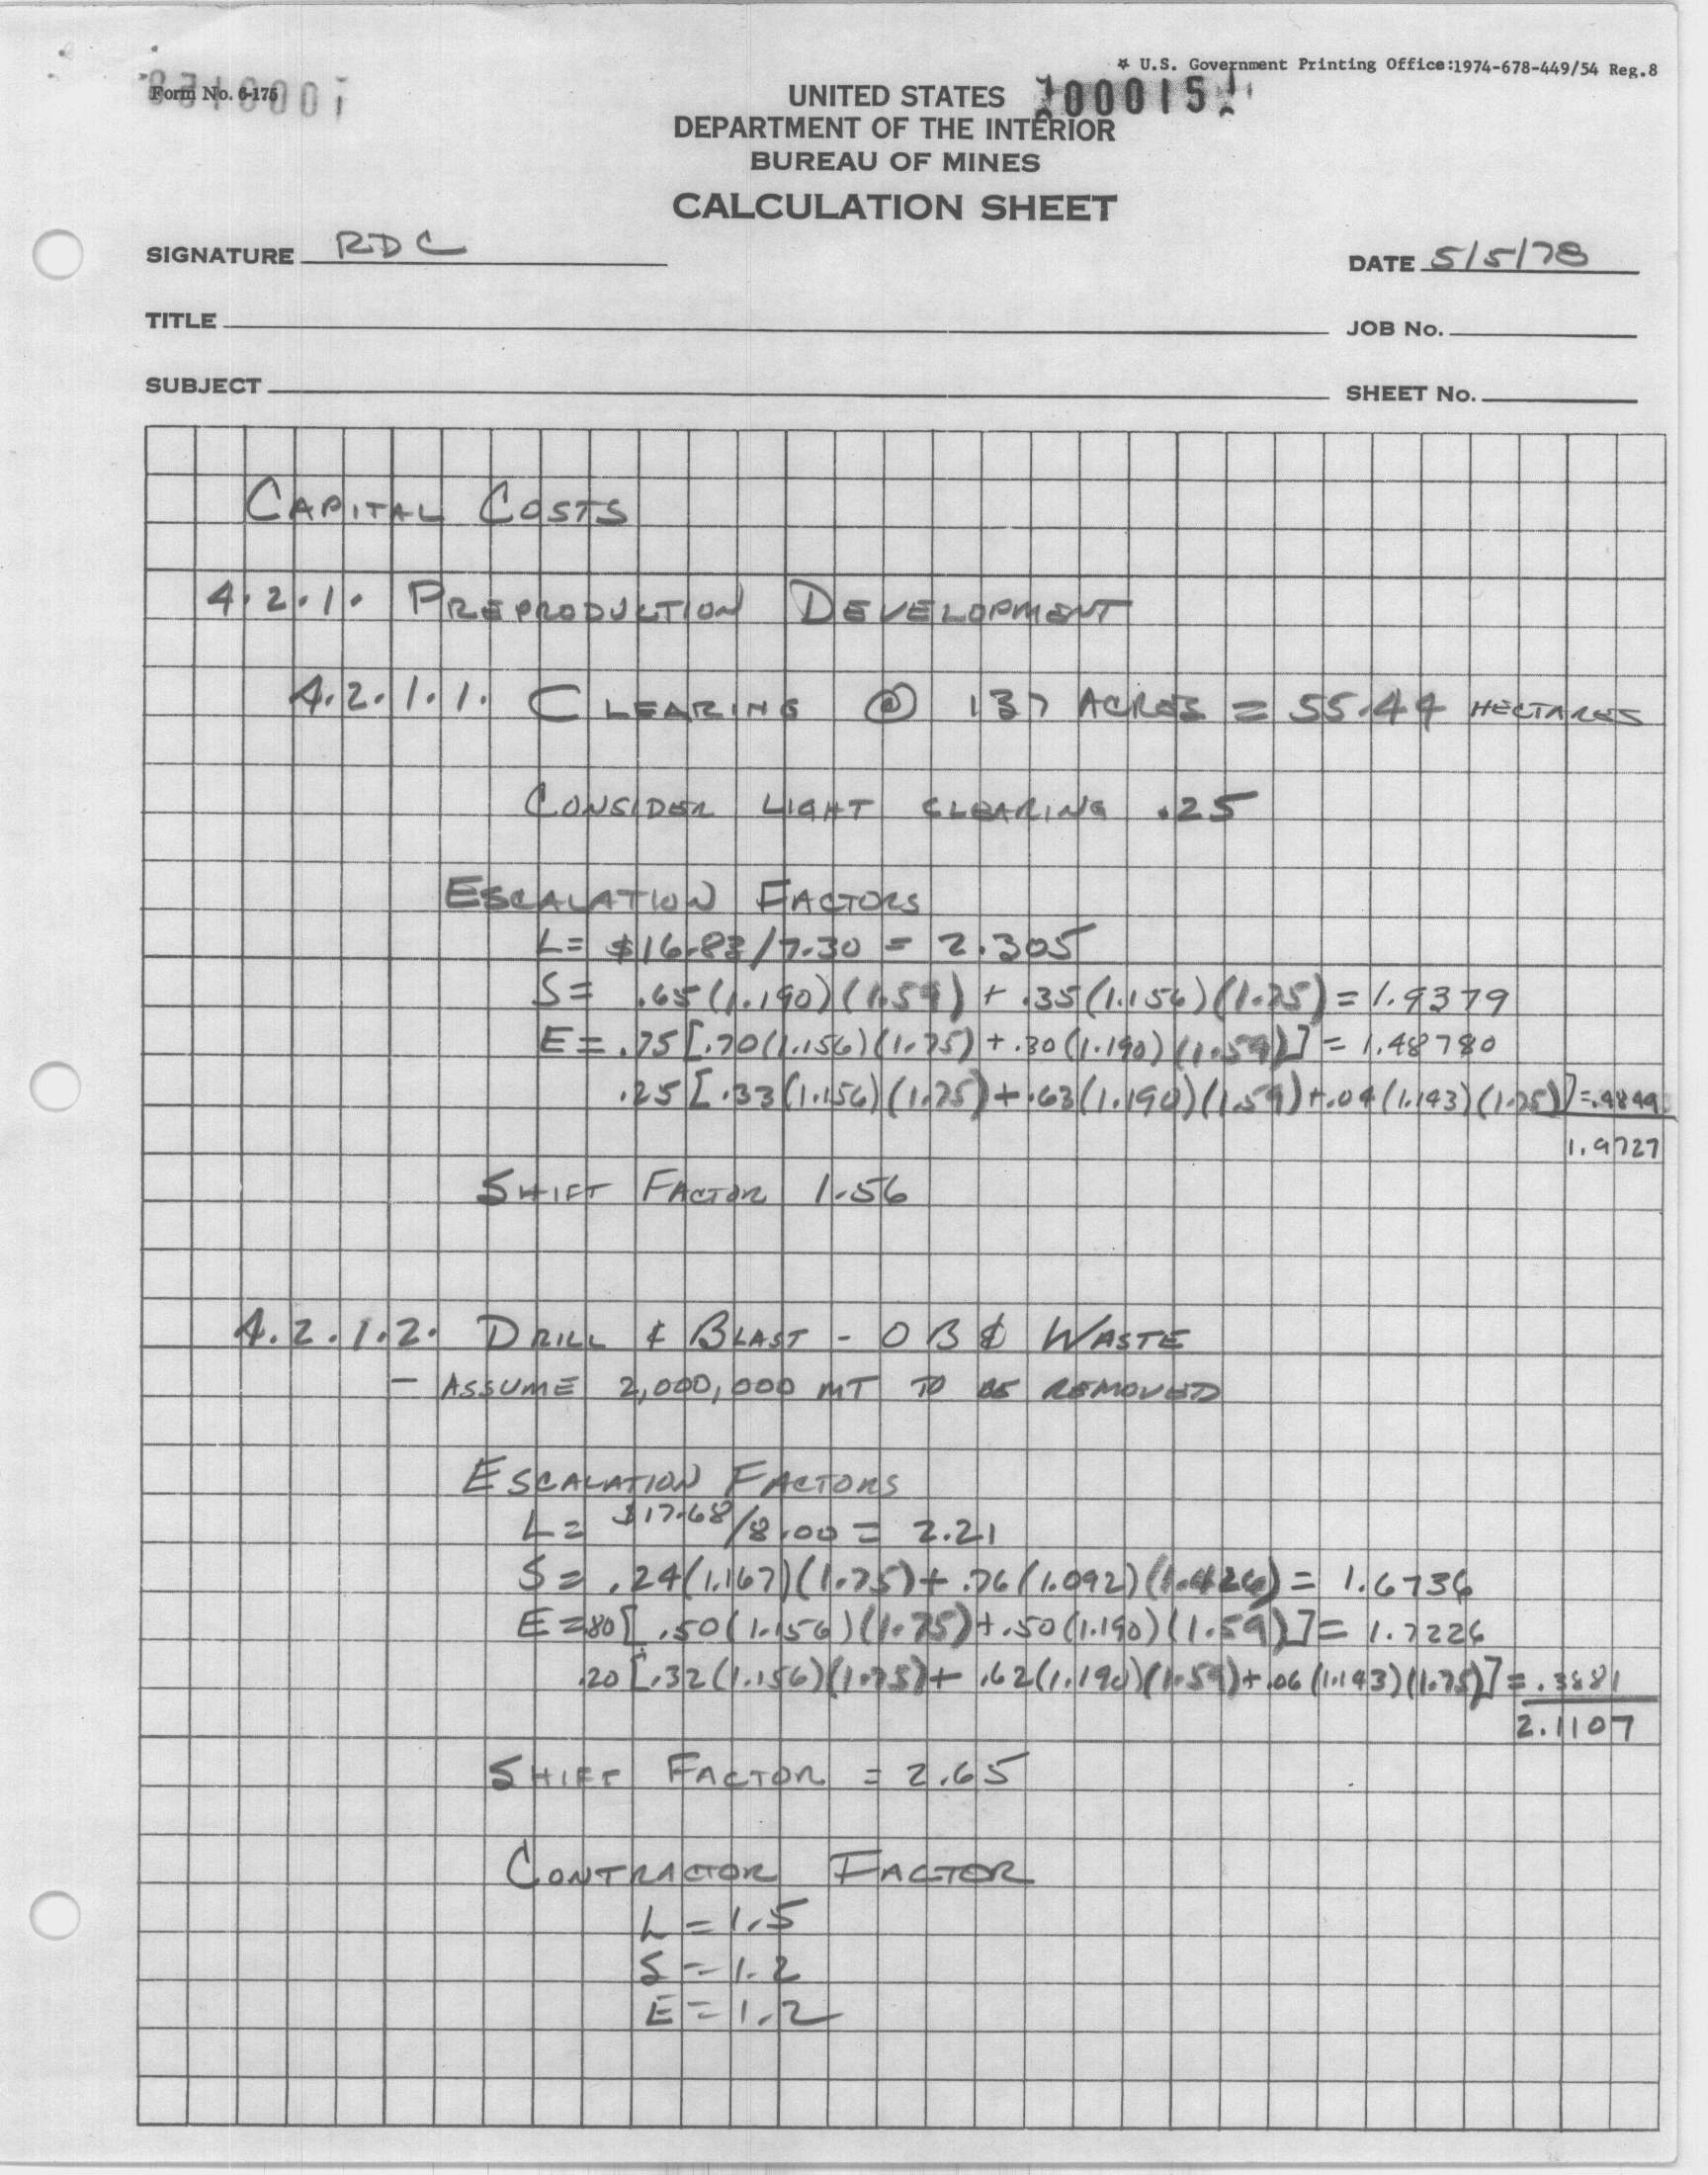 ☆ U.S. Government Printing Office:1974-678-449/54 Reg.8
Form No. 6-175
UNITED STATES 000015
DEPARTMENT OF THE INTERIOR
BUREAU OF MINES
CALCULATION SHEET
SIGNATURE RDC
DATE 5/5/78
TITLE
JOB No.
SUBJECT
SHEET No.
CAPITAL COSTS
4.2.1. PREPRODUCTION DEVELOPMENT
4.2.1.1. CLEARING @ 137 ACRES = 55.44 HECTARES
CONSIDER LIGHT CLEARING .25
ESCALATION FACTORS
L= $16.83/7.30 = 2.305
S= .65(1.190)(1.59) + .35(1.156)(1.75) = 1.9379
E= .75[.70(1.156)(1.75) + .30(1.190)(1.59)] = 1.48780
.25[.33(1.156)(1.75)+.63(1.190)(1.59)+.04(1.143)(1.75)]=.4849
1.9727
SHIFT FACTOR 1.56
4.2.1.2. DRILL & BLAST - OB & WASTE
- ASSUME 2,000,000 MT TO BE REMOVED
ESCALATION FACTORS
L= $17.68/8.00 = 2.21
S= .24(1.167)(1.75)+.76(1.092)(1.426) = 1.6736
E=.80[.50(1.156)(1.75)+.50(1.190)(1.59)] = 1.7226
.20[.32(1.156)(1.75)+ .62(1.190)(1.59)+.06(1.143)(1.75)] = .3881
2.1107
SHIFT FACTOR = 2.65
CONTRACTOR FACTOR
L=1.5
S=1.2
E=1.2